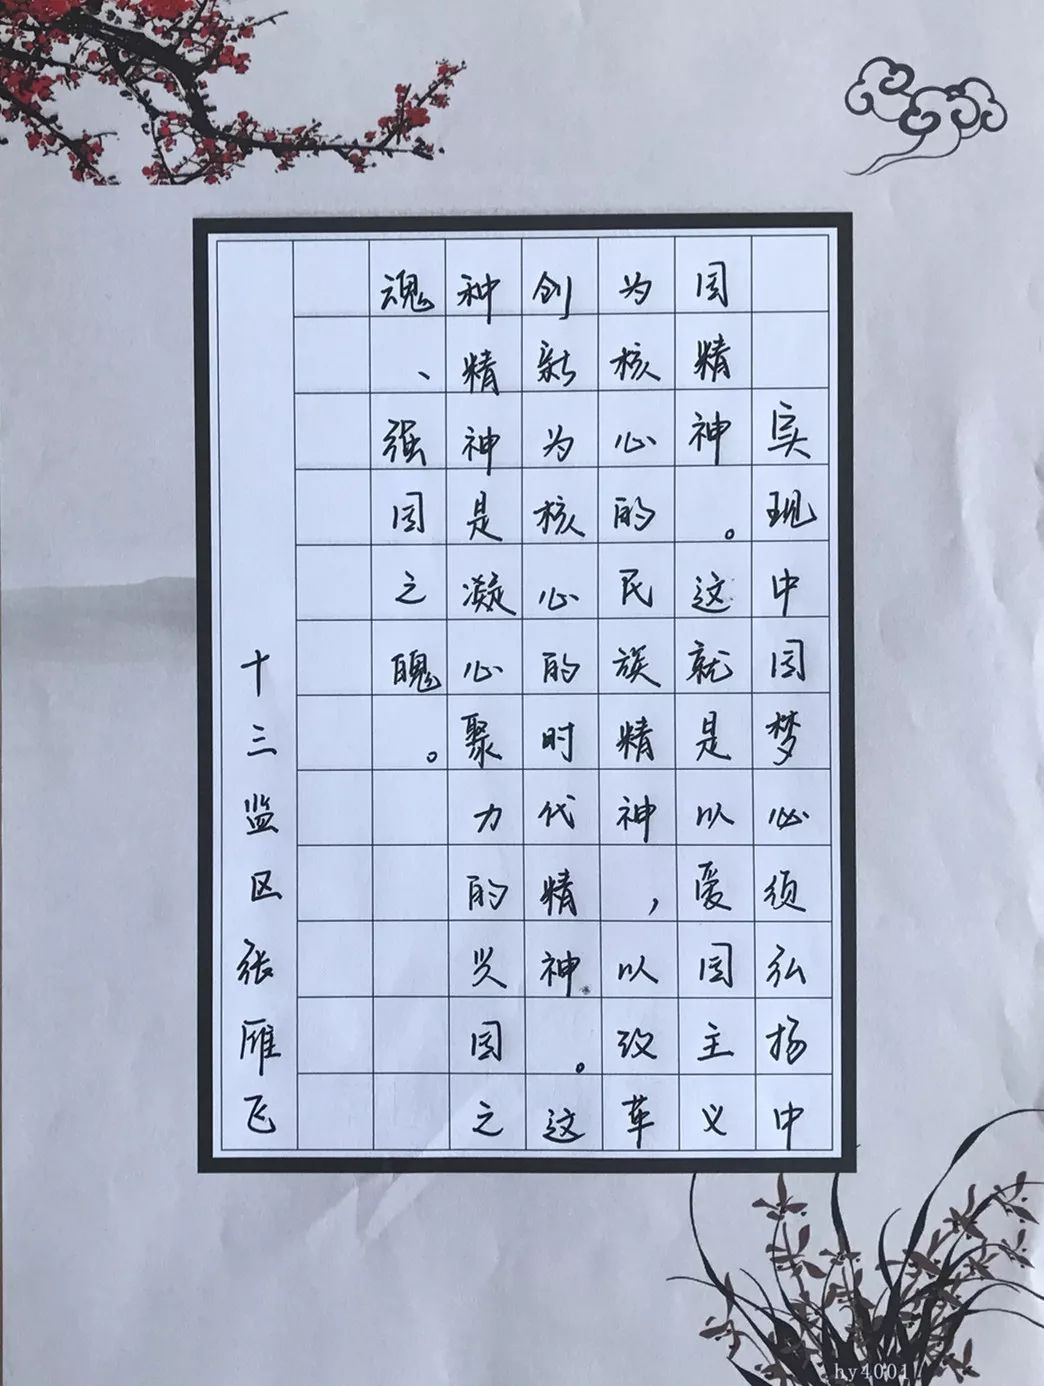 实现中国梦必须弘扬中
国精神。这就是以爱国主义
为核心的民族精神，以改革
创新为核心的时代精神。这
种精神是凝心聚力的兴国之
魂、强国之魄。
十三监区张雁飞
hy4001